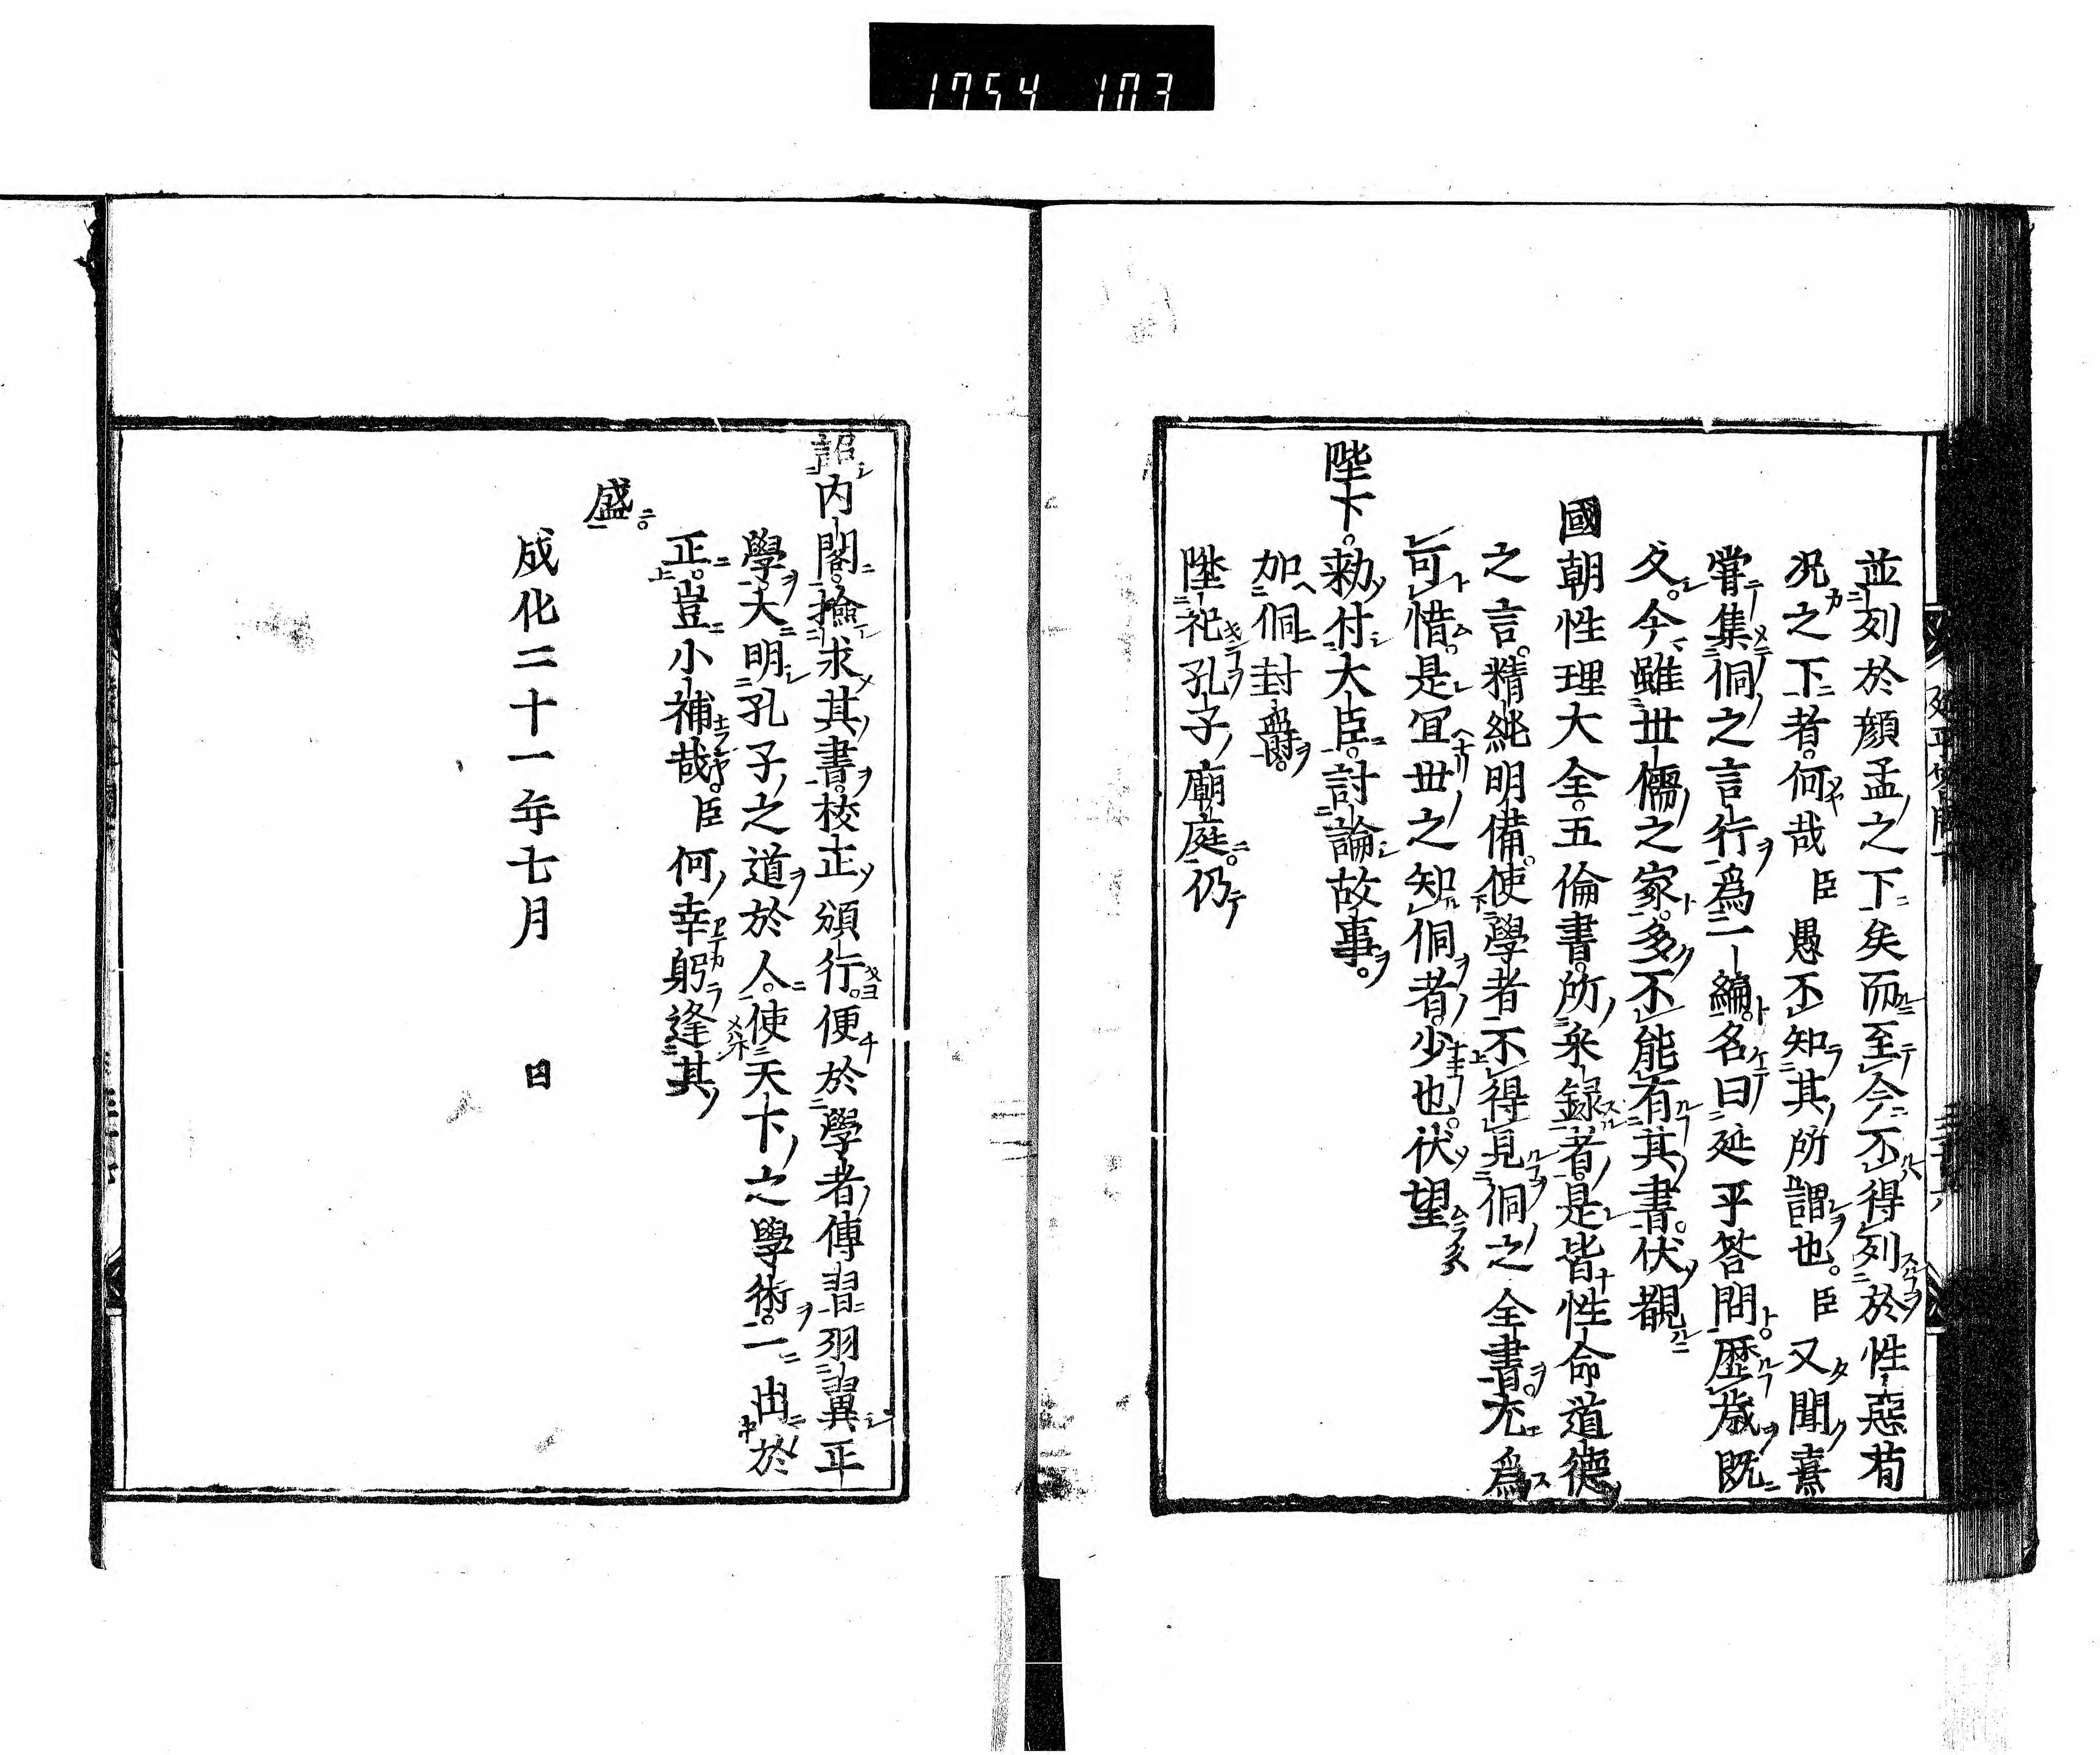 1754 103
並列於顔孟之下矣而至今不得列於性惡荀
况之下者何哉臣愚不知其所謂也臣又聞熹
嘗集侗之言行爲一編名曰延平答問歴歳既
久今雖丗儒之家多不能有其書伏覩
國朝性理大全五倫書所采録者是皆性命道德
之言精純明備使學者不得見侗之全書尤爲
可惜是冝丗之知侗者少也伏望
陛下勑付大臣討論故事
加侗封爵
陞祀孔子廟庭仍
詔内閣撿求其書校正頒行便於學者傳習羽翼正
學大明孔子之道於人使天下之學術一出於
正豈小補哉臣何幸躬逢其
盛
成化二十一年七月 日